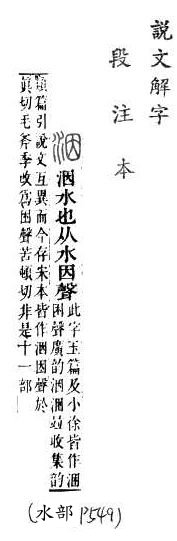 說文解字
段注本
洇 洇水也从水因聲
此字玉篇及小徐皆作涃
困聲廣韵洇涃竝收集韵
類篇引說文互異而今存宋本皆作洇因聲於
眞切毛斧季改爲困聲苦頓切非是十一部
(水部 P549)